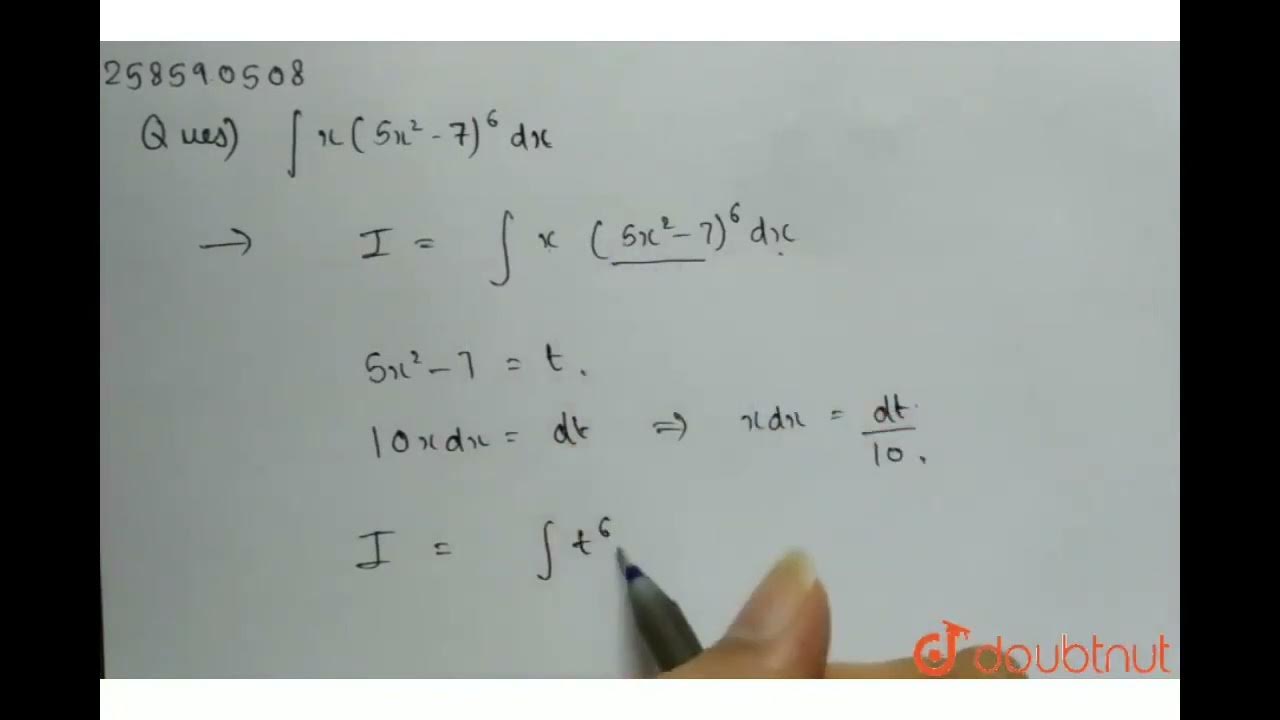 258590508
Ques) ∫ x(5x² - 7)⁶ dx
→ I = ∫ x (5x² - 7)⁶ dx
5x² - 7 = t.
10xdx = dt ⇒ xdx = dt/10.
I = ∫ t⁶
doubtnut